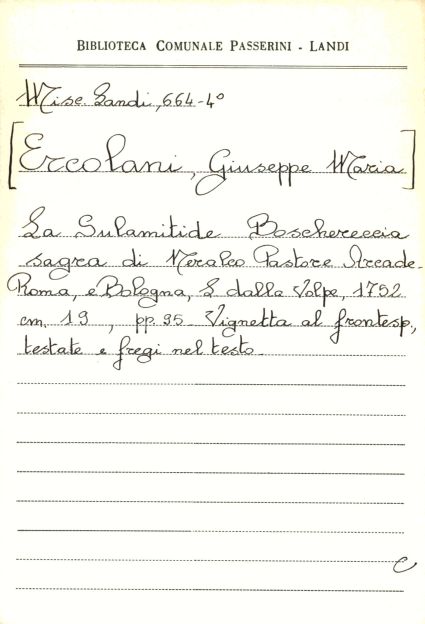 BIBLIOTECA COMUNALE PASSERINI - LANDI
Misc. Landi, 664-4°
[Ercolani, Giuseppe Maria]
La Sulamitide Boschereccia
sagra di Neralco Pastore Arcade.
Roma, e Bologna, L dalla Volpe, 1752
cm. 19 , pp. 95. Vignetta al frontesp.,
testate e fregi nel testo.
C